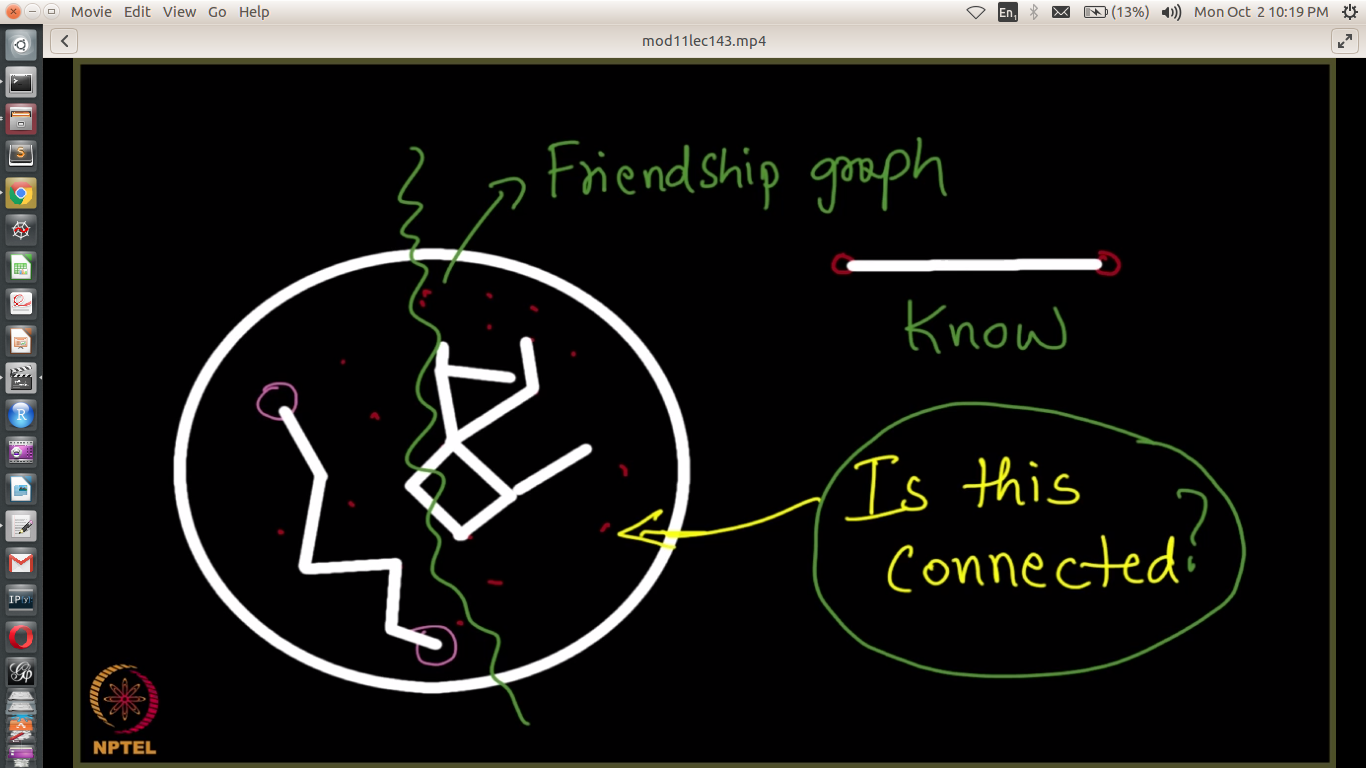 Movie Edit View Go Help
En1 (13%) Mon Oct 2 10:19 PM
mod11lec143.mp4
Friendship graph
Know
Is this
connected?
NPTEL